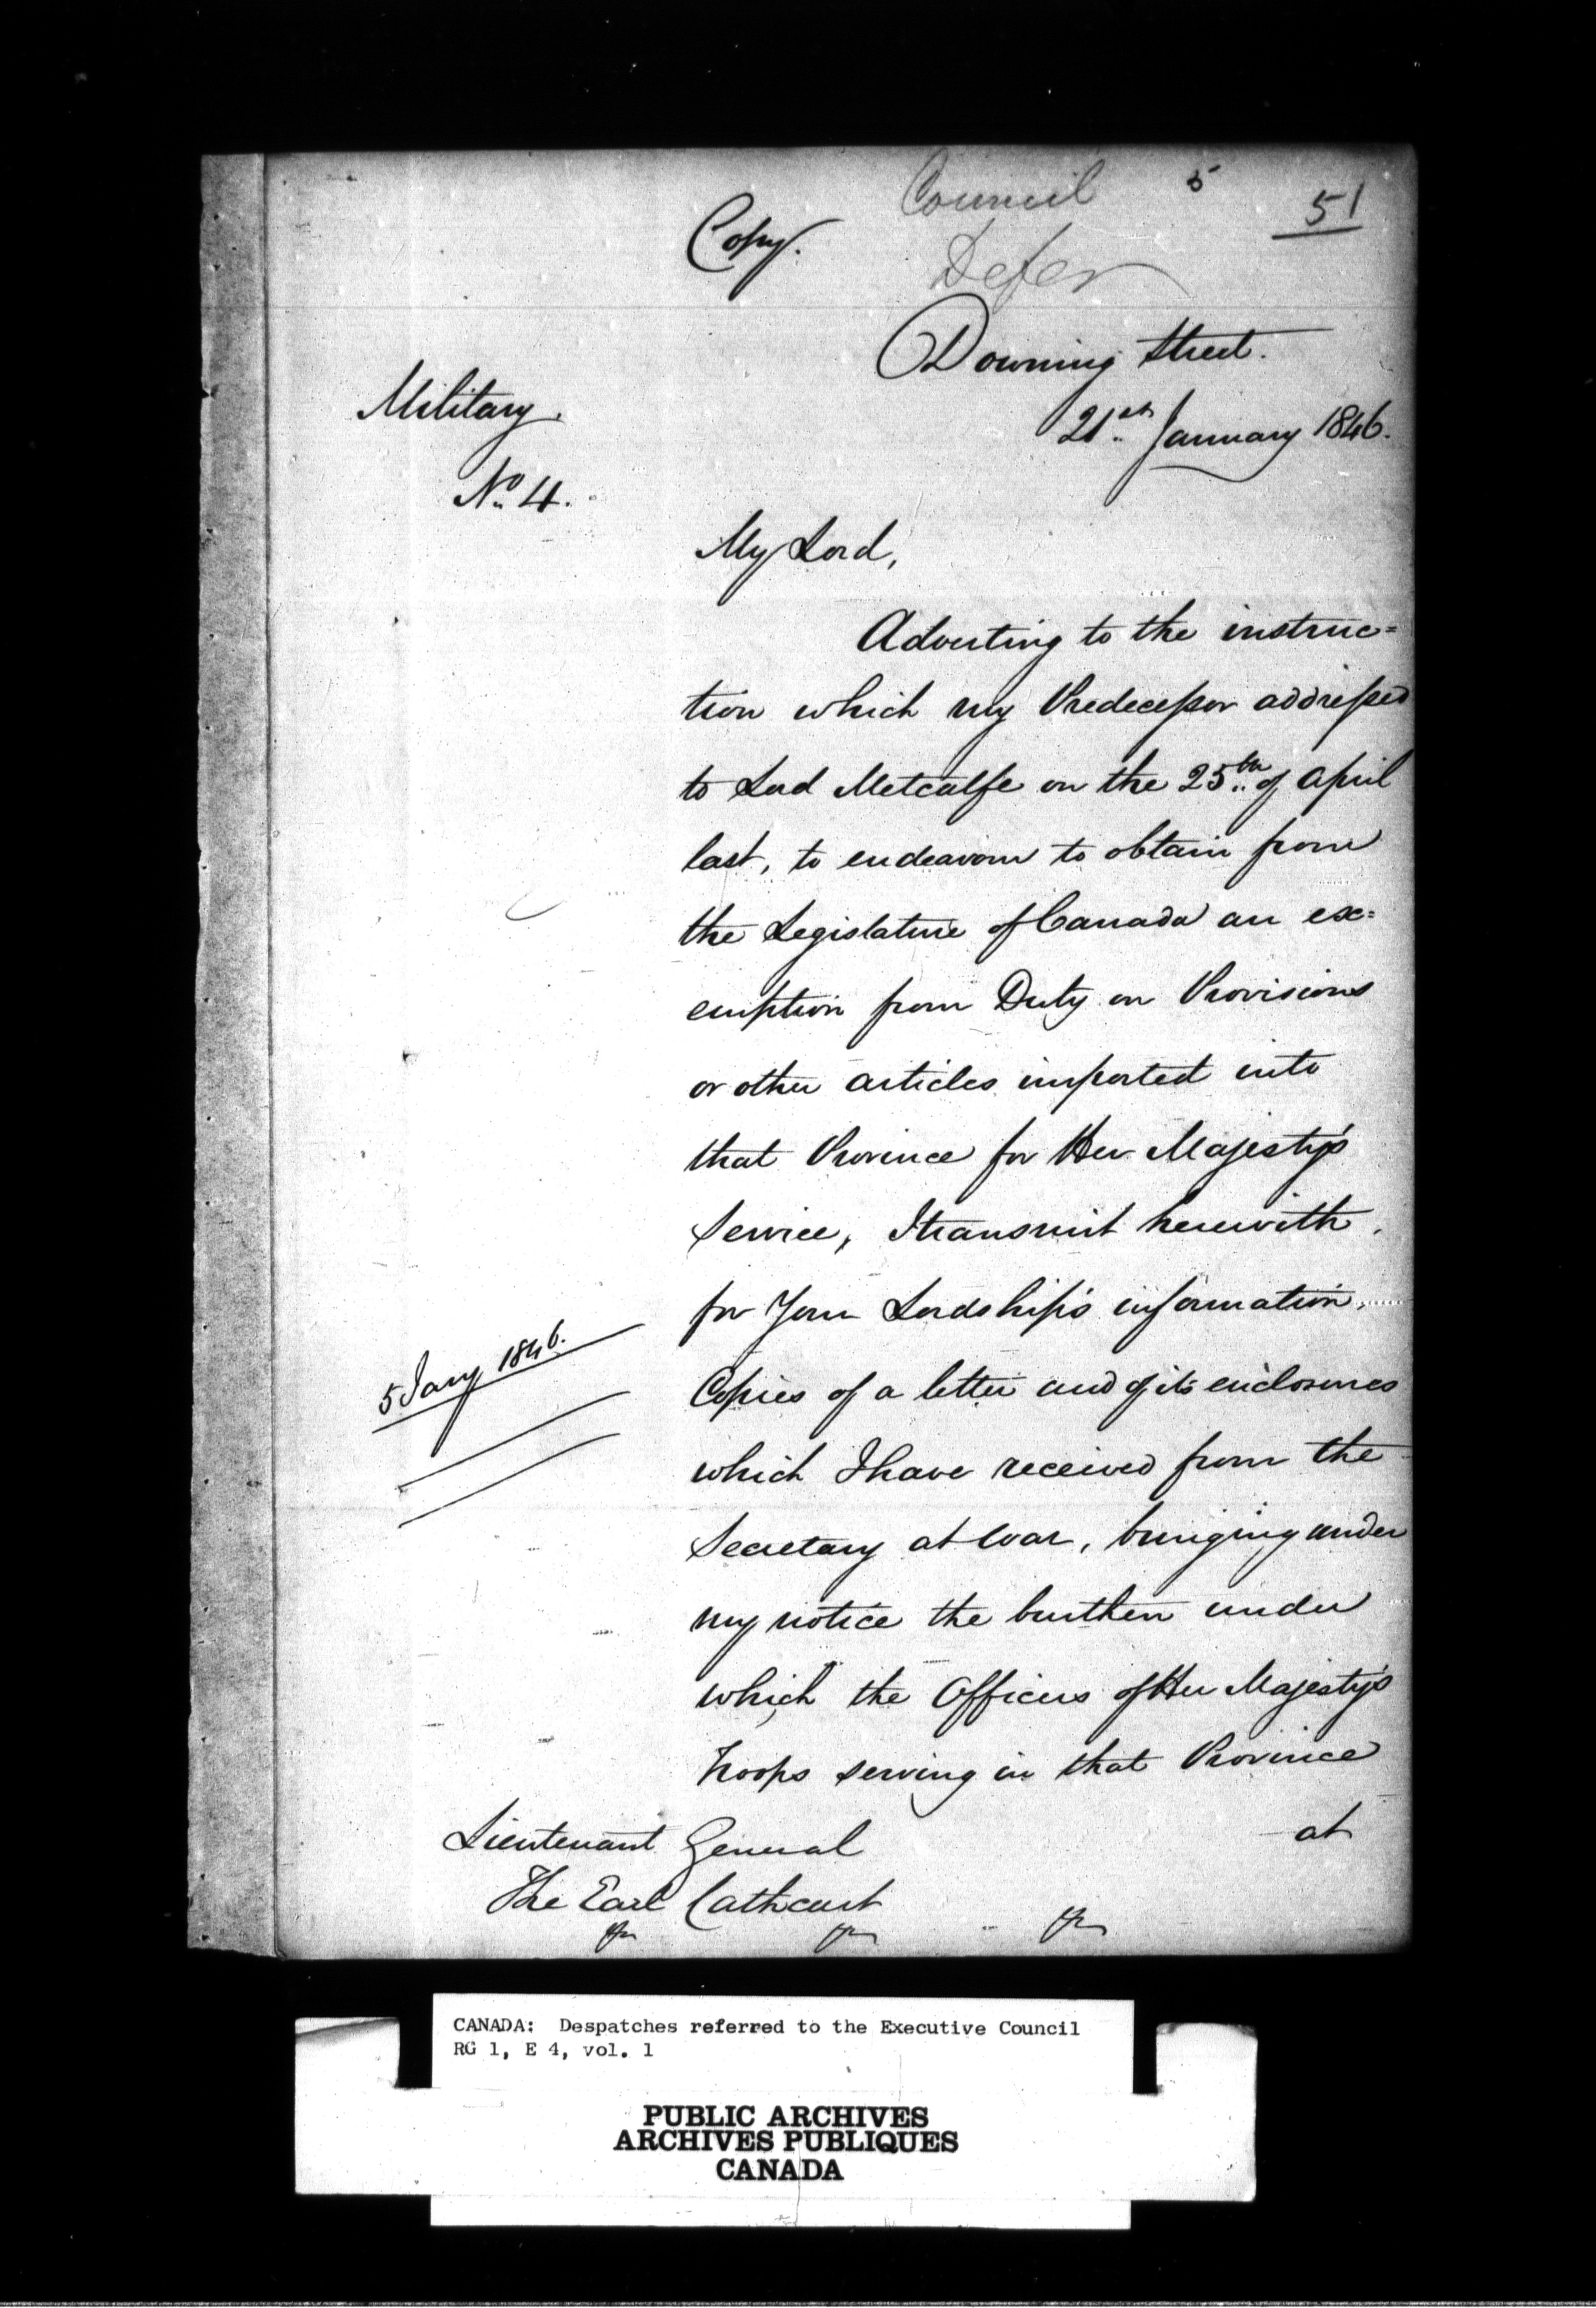 Council 5 51
Copy.
Defer
Downing Street.
Military.
21st January 1846.
No. 4.
My Lord,
Adverting to the instruc=
tion which my Predecessor addressed
to Lord Metcalfe on the 25th of April
last, to endeavour to obtain from
the Legislature of Canada an ex=
emption from Duty on Provisions
or other articles imported into
that Province for Her Majesty's
Service, I transmit herewith,
for Your Lordship's information,
5 Jany 1846.
Copies of a letter and of its enclosures
which I have received from the
Secretary at War, bringing under
my notice the burthen under
which the Officers of Her Majesty's
Troops serving in that Province
at
Lieutenant General
The Earl Cathcart
CANADA: Despatches referred to the Executive Council
RG 1, E 4, vol. 1
PUBLIC ARCHIVES
ARCHIVES PUBLIQUES
CANADA